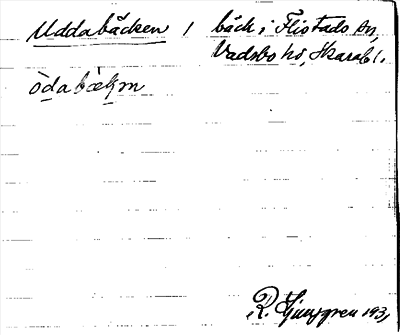 Uddabäcken / bäck i Flistads sn,
Vadsbo hd, Skarab l.
òdabækm
R. Ljunggren 193,